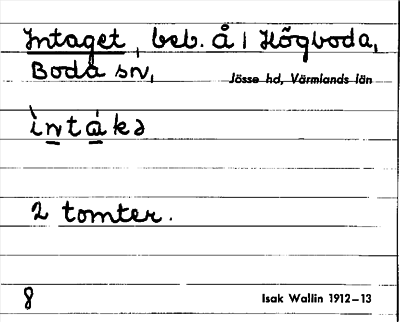 Intaget, beb. å | Högboda,
Boda sn, Jösse hd, Värmlands län
ìntákə
2 tomter.
8 Isak Wallin 1912–13